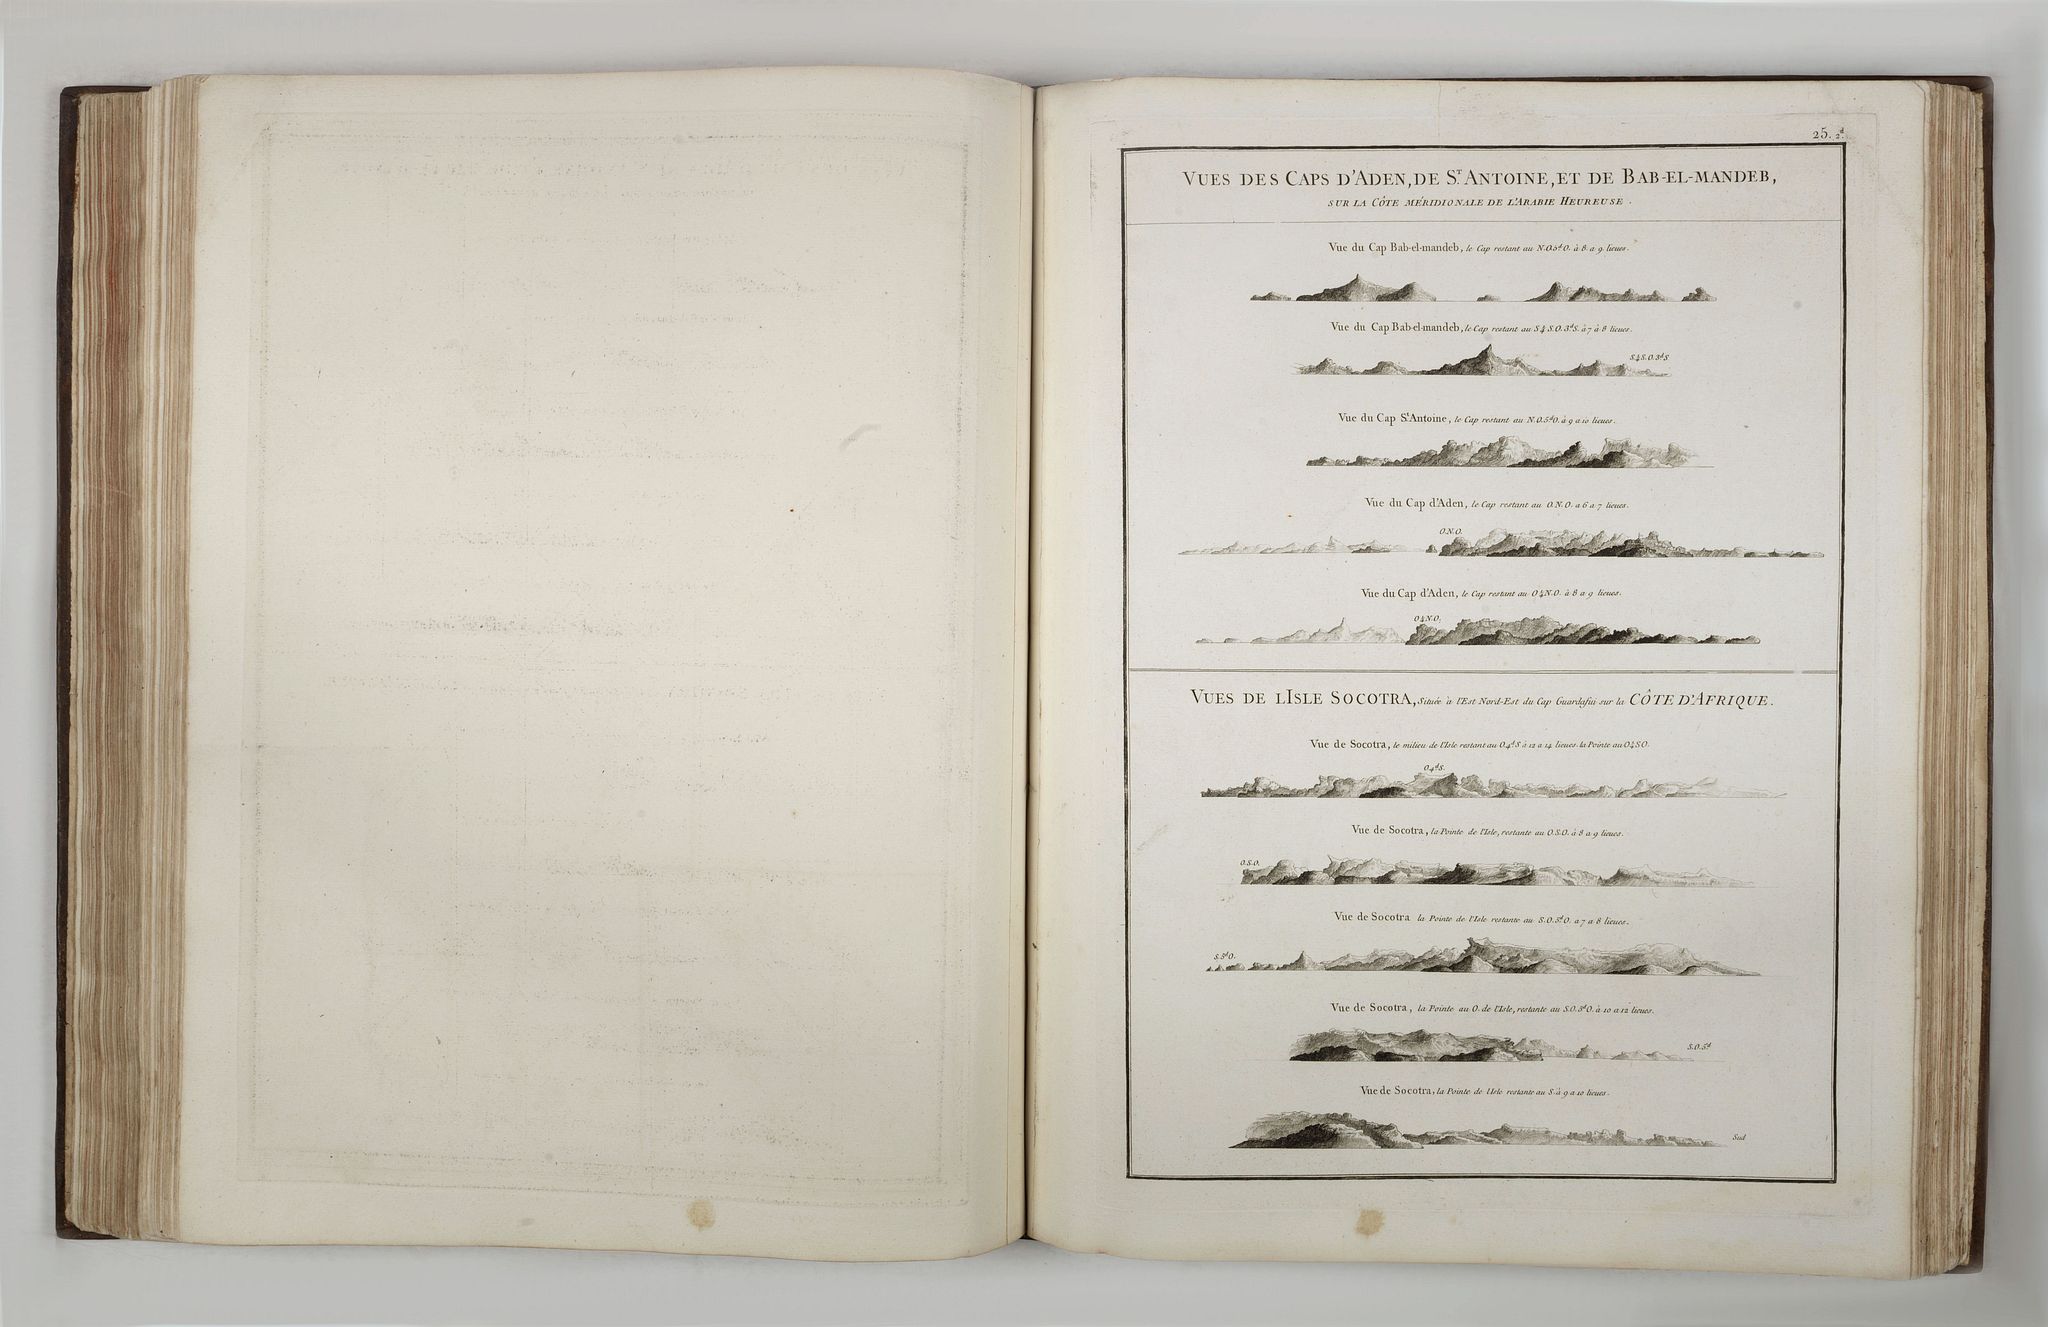 25. 2d.
VUES DES CAPS D'ADEN, DE ST. ANTOINE, ET DE BAB-EL-MANDEB,
SUR LA CÔTE MÉRIDIONALE DE L'ARABIE HEUREUSE.
Vue du Cap Bab-el-mandeb, le Cap restant au N.O.5d.O. à 8. a 9. lieues.
Vue du Cap Bab-el-mandeb, le Cap restant au S¼S.O.3d.S. à 7 à 8 lieues.
S¼S.O.3d.S
Vue du Cap St. Antoine, le Cap restant au N.O.5d.O. à 9 a 10 lieues.
Vue du Cap d'Aden, le Cap restant au O.N.O. a 6 a 7 lieues.
O.N.O.
Vue du Cap d'Aden, le Cap restant au O¼N.O. à 8 a 9 lieues.
O¼N.O.
VUES DE L'ISLE SOCOTRA, Située à l'Est Nord-Est du Cap Guardafui sur la CÔTE D'AFRIQUE.
Vue de Socotra, le milieu de l'Isle restant au O.4d.S à 12 a 14 lieues. la Pointe au O¼SO.
O4d.S.
Vue de Socotra, la Pointe de l'Isle, restante au O.S.O. à 8 a 9 lieues.
O.S.O.
Vue de Socotra la Pointe de l'Isle restante au S.O.5d.O. a 7 a 8 lieues.
S.5d.O.
Vue de Socotra, la Pointe au O. de l'Isle, restante au S.O.5d.O. à 10 a 12 lieues.
S.O.5d
Vue de Socotra, la Pointe de l'Isle restante au S. à 9 a 10 lieues.
Sud